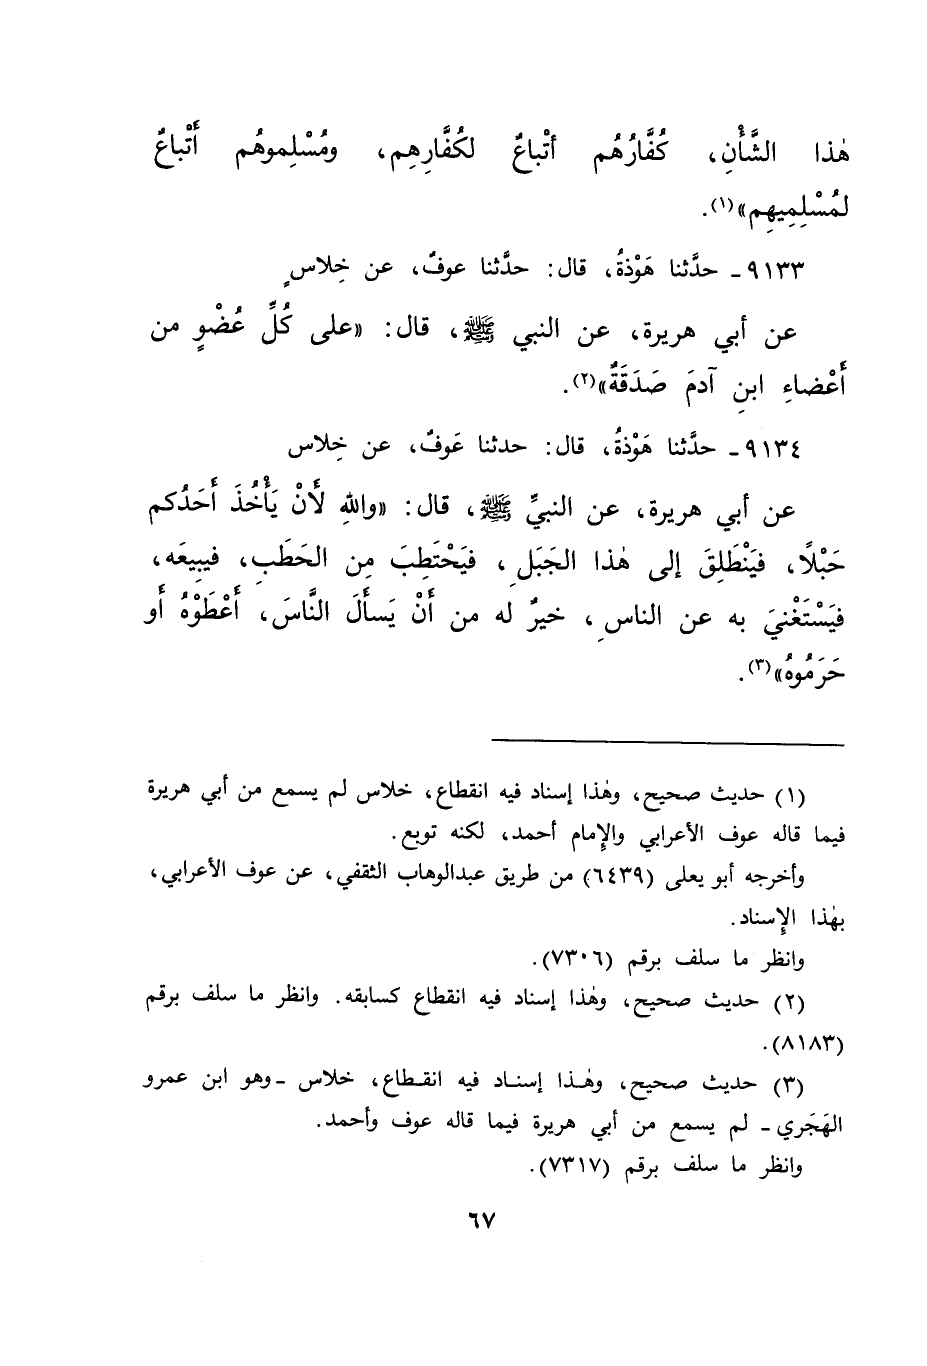 هٰذا الشَّأْنِ، كُفَّارُهُم أتْباعٌ لكُفَّارِهِم، ومُسْلِموهُم أَتْباعٌ
لمُسْلِمِيهِم»(١).
٩١٣٣ ـ حدَّثنا هَوْذةُ، قال: حدَّثنا عوفٌ، عن خِلاسٍ
عن أبي هريرة، عن النبي ﷺ، قال: «على كُلِّ عُضْوٍ من
أَعْضاءِ ابنِ آدمَ صَدَقَةٌ»(٢).
٩١٣٤ ـ حدَّثنا هَوْذةُ، قال: حدثنا عَوفٌ، عن خِلاس
عن أبي هريرة، عن النبيِّ ﷺ، قال: «واللهِ لَأَنْ يَأْخُذَ أَحَدُكم
حَبْلًا، فيَنْطَلِقَ إلى هٰذا الجَبَلِ، فيَحْتَطِبَ مِن الحَطَبِ، فيبِيعَه،
فيَسْتَغْنيَ به عن الناسِ، خيرٌ له من أَنْ يَسأَلَ النَّاسَ، أَعْطَوْهُ أو
حَرَمُوهُ»(٣).
(١) حديث صحيح، وهٰذا إسناد فيه انقطاع، خلاس لم يسمع من أبي هريرة
فيما قاله عوف الأعرابي والإمام أحمد، لكنه توبع.
وأخرجه أبو يعلى (٦٤٣٩) من طريق عبدالوهاب الثقفي، عن عوف الأعرابي،
بهٰذا الإسناد.
وانظر ما سلف برقم (٧٣٠٦).
(٢) حديث صحيح، وهٰذا إسناد فيه انقطاع كسابقه. وانظر ما سلف برقم
(٨١٨٣).
(٣) حديث صحيح، وهٰذا إسناد فيه انقطاع، خلاس ـ وهو ابن عمرو
الهَجَري ـ لم يسمع من أبي هريرة فيما قاله عوف وأحمد.
وانظر ما سلف برقم (٧٣١٧).
٦٧